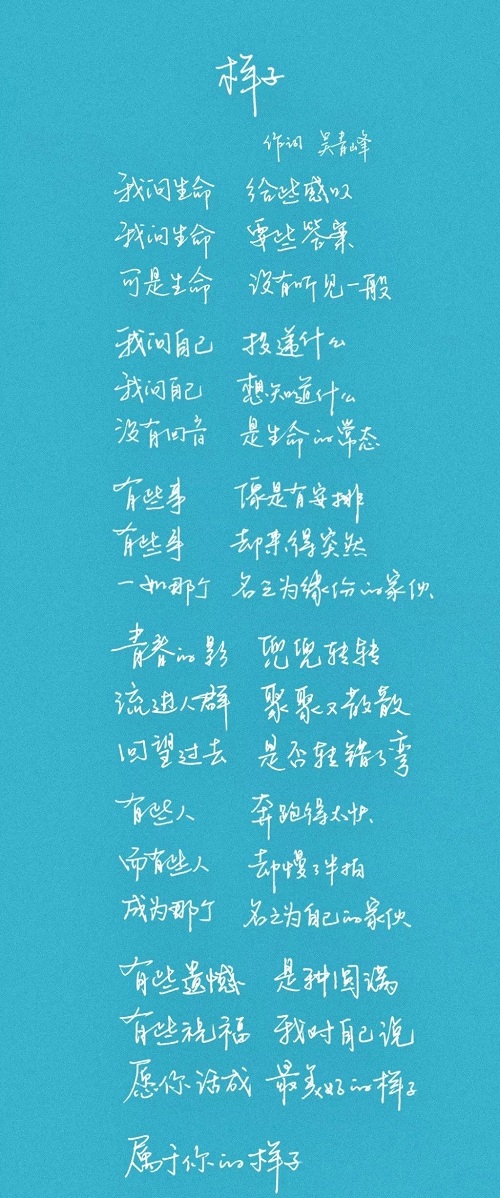 样子
作词 吴青峰
我问生命 给些感叹
我问生命 要些答案
可是生命 没有听见一般
我问自己 投递什么
我问自己 想知道什么
没有回音 是生命的常态
有些事 像是有安排
有些事 却来得突然
一如那个 名之为缘份的家伙
青春的影 兜兜转转
流进人群 聚聚又散散
回望过去 是否转错了弯
有些人 奔跑得太快
而有些人 却慢了半拍
成为那个 名之为自己的家伙
有些遗憾 是种圆满
有些祝福 我对自己说
愿你活成 最美好的样子
属于你的样子